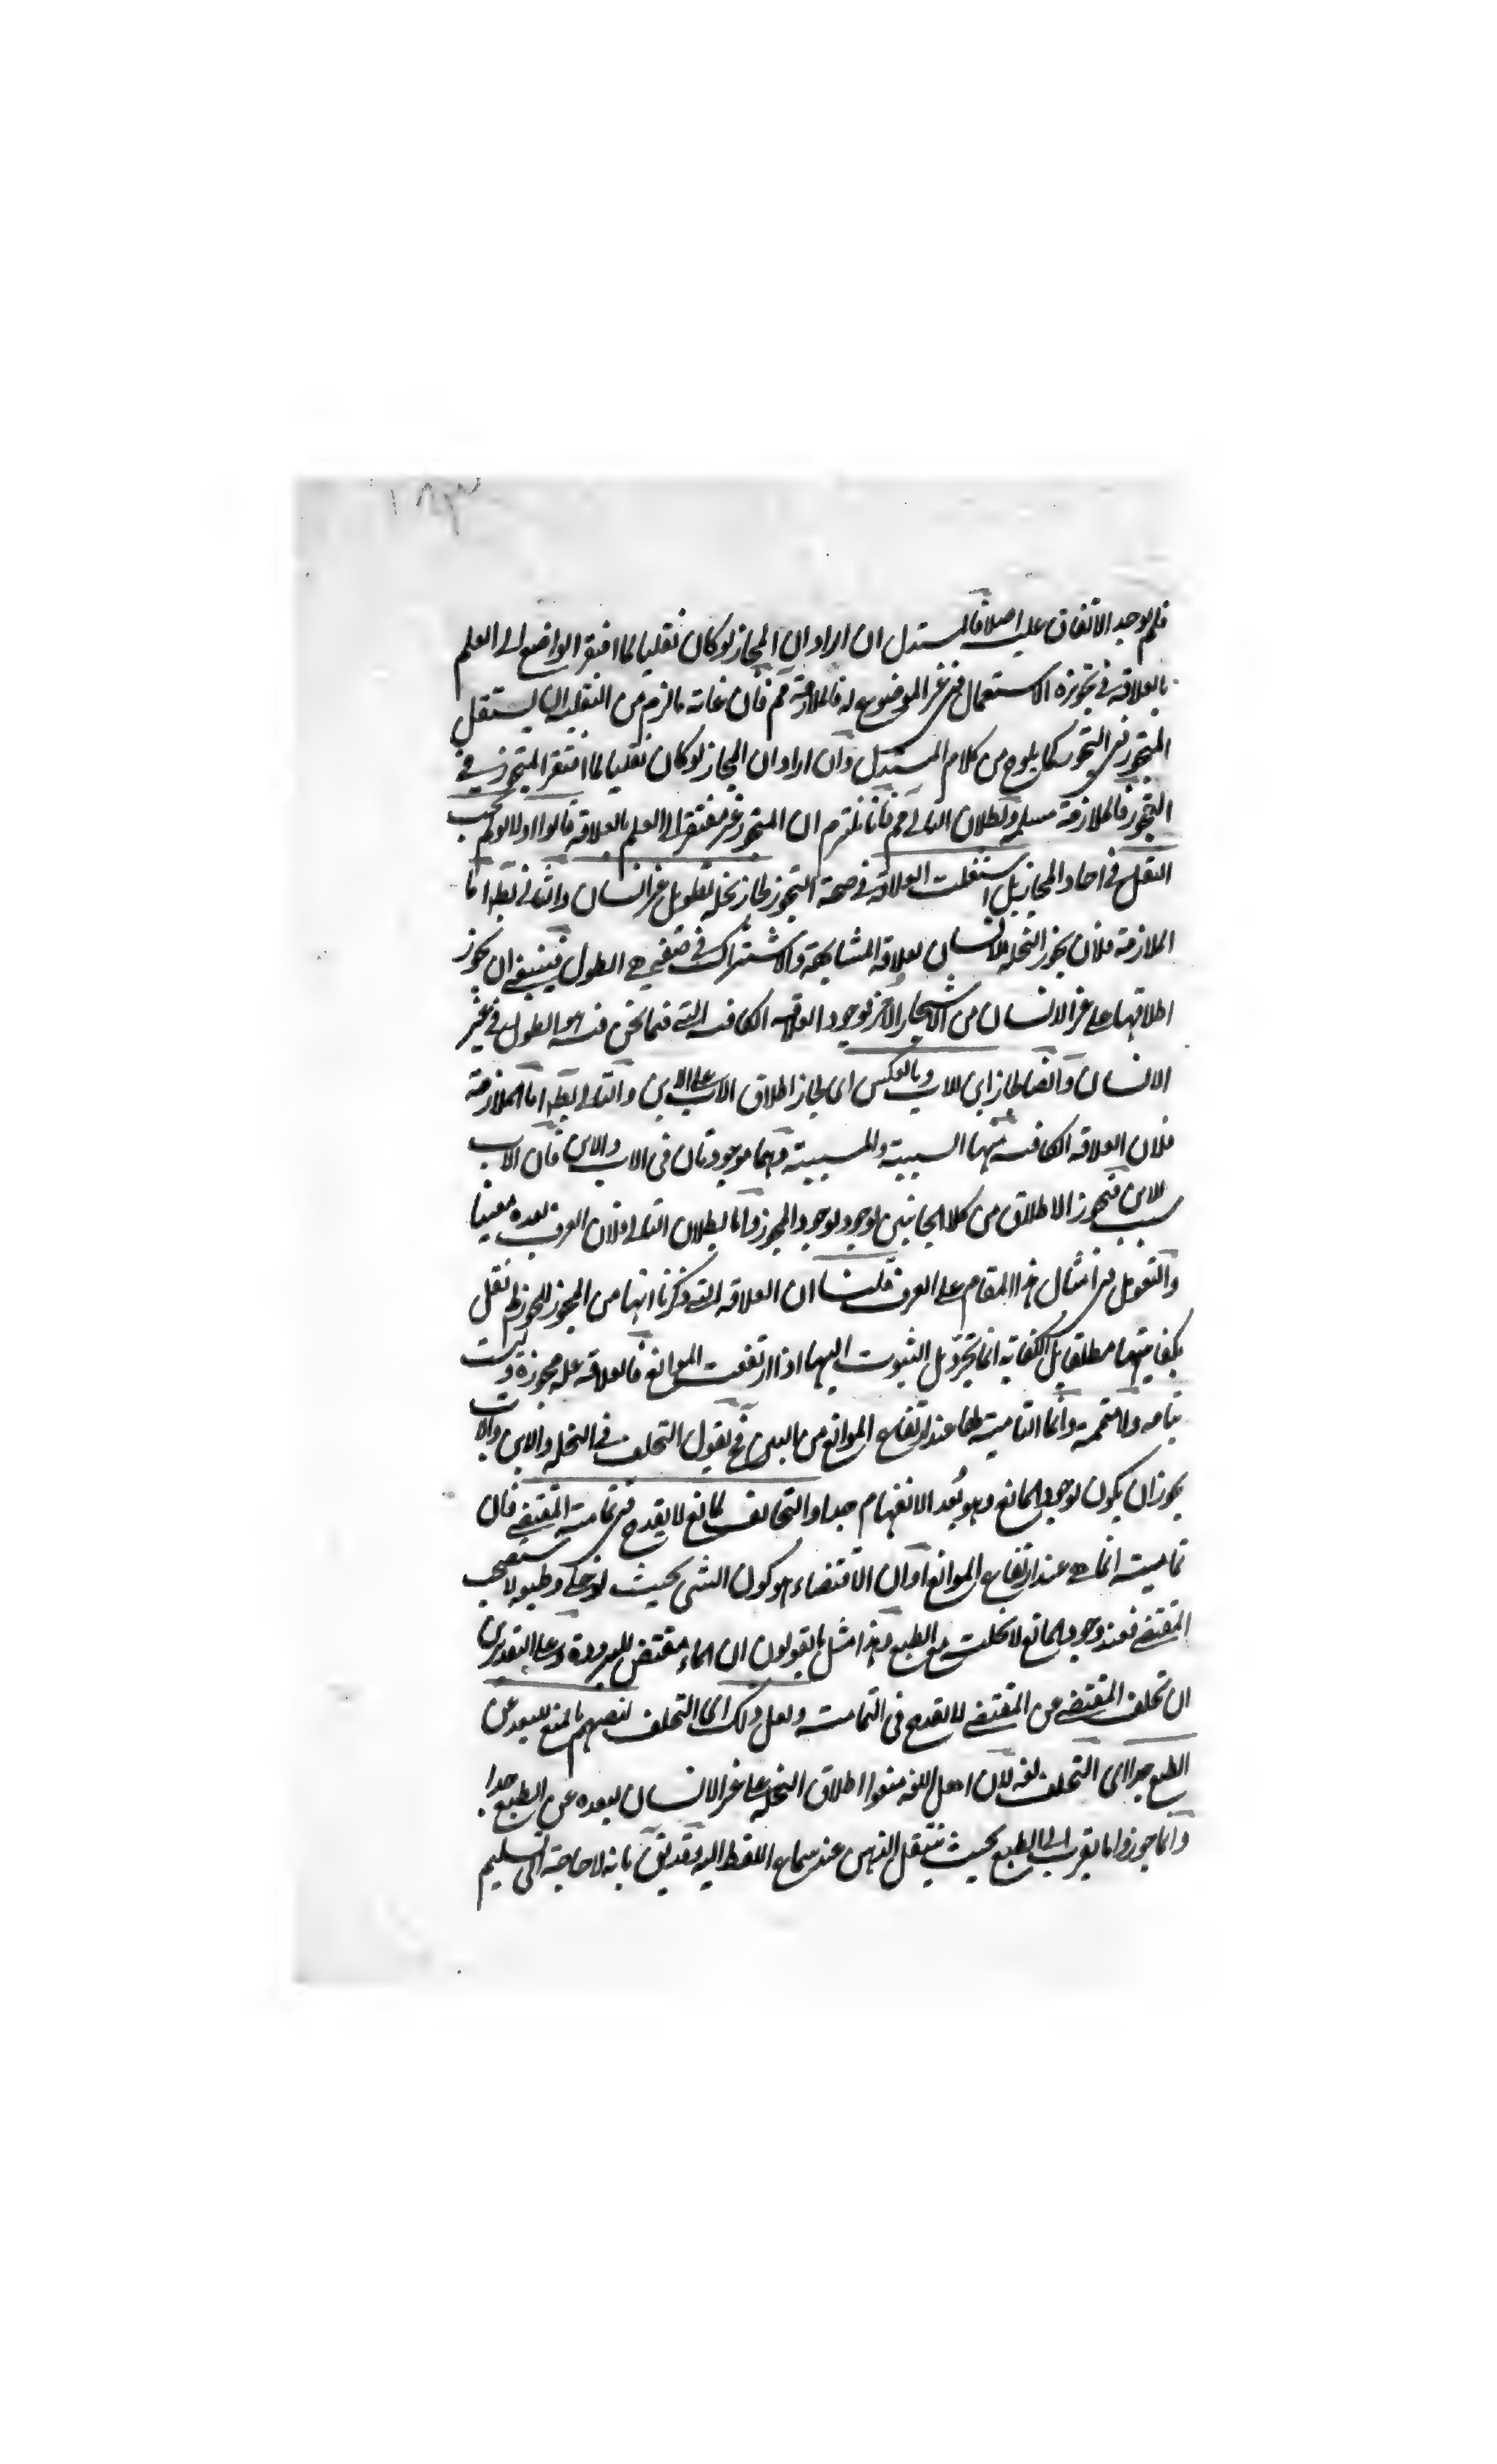 فلم يوجد الاتفاق عليه اصلا فالمستدل ان اراد ان المجاز لو كان نقليا لما افتقر الواضع الى العلم
بالعلاقة في تجويزه الاستعمال في غير الموضوع له فالملازمة مم فان غاية ما لزم من النقلية ان يستقل
المتجوز في التجوز كما يلوح من كلام المستدل وان اراد ان المجاز لو كان نقليا لما افتقر المتجوز في
التجوز فالملازمة مسلمة وبطلان التالي مم فانا نلتزم ان المتجوز غير مفتقر الى العلم بالعلاقة قالوا اولا لو لم يجب
النقل في احاد المجاز بل استقلت العلاقة في صحة التجوز لجاز نخلة لطويل غير انسان والتالي بط اما
الملازمة فلان يجوز النخلة للانسان لعلاقة المشابهة والاشتراك في صفة هي الطول فينبغي ان يجوز
اطلاقها على غير الانسان من الاشجار الاخر لوجود العلاقة الكافية التي فيما نحن فيه هو الطول في غير
الانسان وايضا لجاز ابن للاب وبالعكس اى لجاز اطلاق الاب على الابن والتالي بط اما الملازمة
فلان العلاقة الكافية منها السببية والمسببية وهما موجودتان في الاب والابن فان الاب
سبب للابن فيجوز الاطلاق من كلا الجانبين لوجود المجوز واما بطلان التالي فلان العرف يعده معيبا
والتعويل في امثال هذا المقام على العرف قلنا ان العلاقة التي ذكرنا انها من المجوز للتجوز لم نقل
بكفايتها مطلقا بل الكفاية انما الثبوت اليها اذا ارتفعت الموانع فالعلاقة علة مجوزة وليست
بتامة ولا متممة وانما التامية لها عند ارتفاع الموانع من البين فح نقول التخلف في النخلة والابن والاب
يجوز ان يكون لوجود المانع وهو بعد الانفهام جدا والتخلف لمانع لا يقدح في تمامية المقتضي فان
تماميته انما هي عند ارتفاع الموانع او ان الاقتضاء هو كون الشي بحيث لو خلي وطبعه لاستصحب
المقتضى فعند وجود المانع لا تخلية مع الطبع وهذا مثل ما يقولون ان الماء مقتض للبرودة وعلى التقديرين
ان تخلف المقتضى عن المقتضي لا يقدح في التمامية ولعل ذلك اى التخلف لنصهم بالمنع للبعد عن
الطبع جدا اى التخلف لغة لان اهل اللغة منعوا اطلاق النخلة على غير الانسان لبعده عن الطبع جدا
وانما جوزوا ما يقرب الى الطبع بحيث ينتقل الذهن عند سماع اللفظ اليه وقد يدق بانه لا حاجة الى تسليم